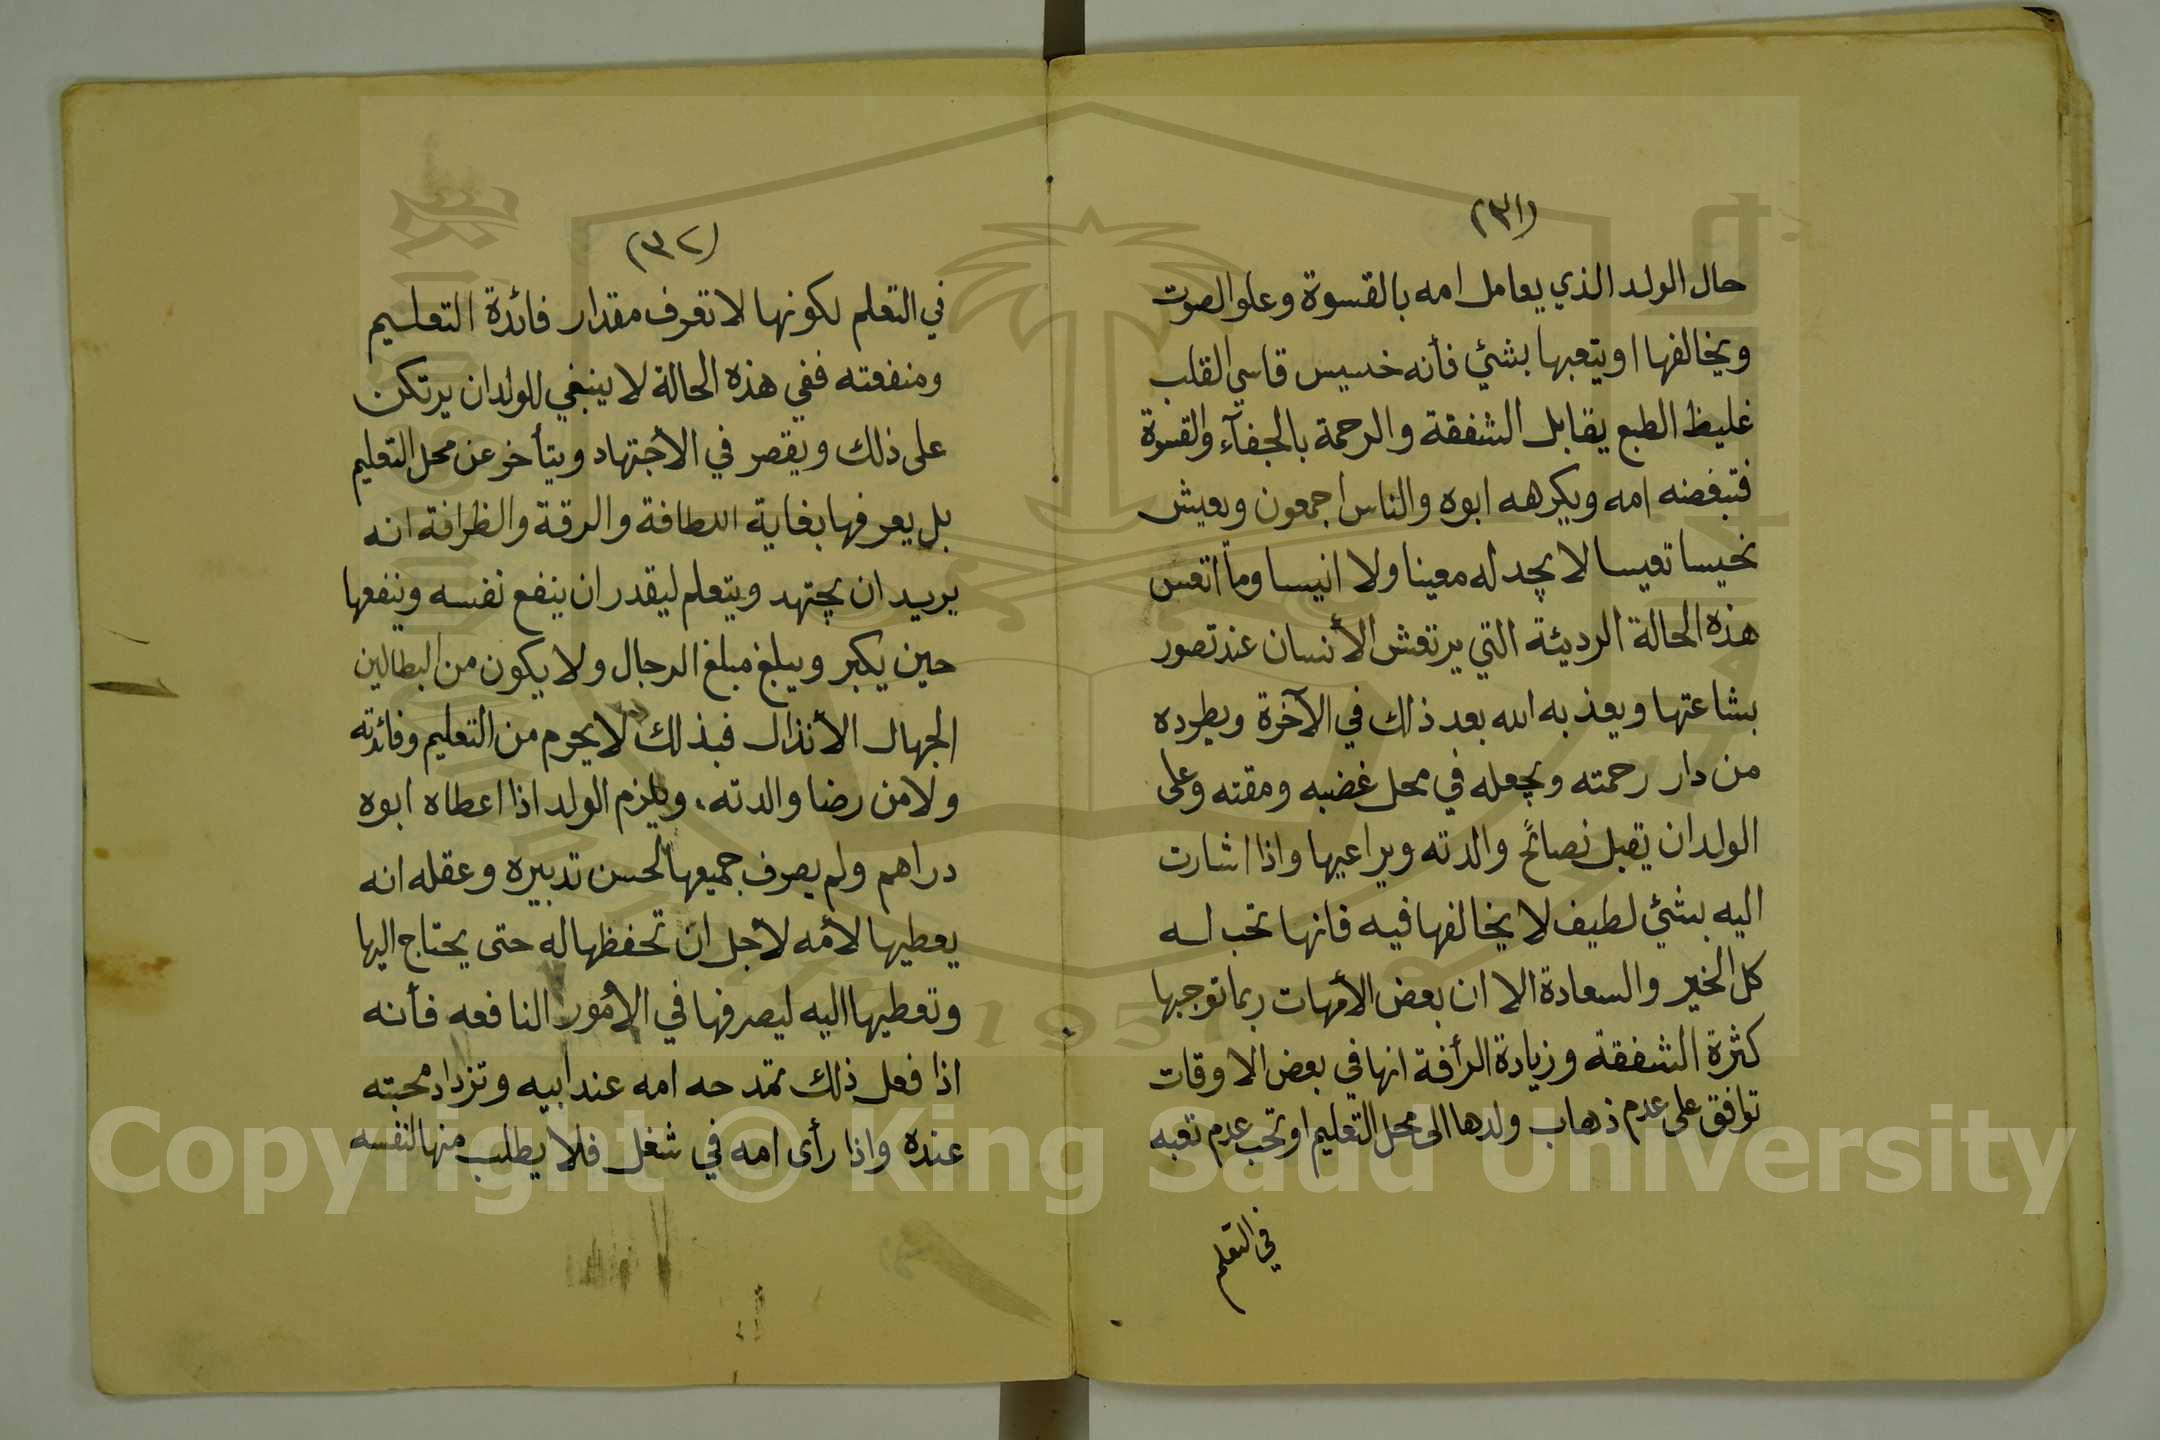 (٣١)
حال الولد الذي يعامل امه بالقسوة وعلو الصوت
ويخالفها او يتعبها بشئ فأنه خسيس قاسي القلب
غليظ الطبع يقابل الشفقة والرحمة بالجفآء والقسوة
فتبغضه امه ويكرهه ابوه والناس اجمعون ويعيش
نحيسا تعيسا لا يجد له معينا ولا انيسا وما اتعس
هذه الحالة الرديئة التي يرتعش الأنسان عند تصور
بشاعتها ويعذبه الله بعد ذلك في الآخرة ويطرده
من دار رحمته ويجعله في محل غضبه ومقته وعلى
الولد ان يقبل نصائح والدته ويراعيها واذا اشارت
اليه بشئ لطيف لا يخالفها فيه فانها تحب له
كل الخير والسعادة الا ان بعض الأمهات ربما توجبها
كثرة الشفقة وزيادة الرأفة انها في بعض الاوقات
توافق على عدم ذهاب ولدها الى محل التعليم او تحب عدم تعبه
في التعلم
(٣٢)
في التعلم لكونها لا تعرف مقدار فائدة التعليم
ومنفعته ففي هذه الحالة لا ينبغي للولد ان يرتكن
على ذلك ويقصر في الأجتهاد ويتأخر عن محل التعليم
بل يعرفها بغاية اللطافة والرقة والظرافة انه
يريد ان يجتهد ويتعلم ليقدر ان ينفع نفسه وينفعها
حين يكبر ويبلغ مبلغ الرجال ولا يكون من البطالين
الجهال الأنذال فبذلك لا يحرم من التعليم وفائدته
ولا من رضا والدته، ويلزم الولد اذا اعطاه ابوه
دراهم ولم يصرف جميعها لحسن تدبيره وعقله انه
يعطيها لأمه لأجل ان تحفظها له حتى يحتاج اليها
وتعطيها اليه ليصرفها في الأمور النافعه فأنه
اذا فعل ذلك تمدحه امه عند أبيه وتزداد محبته
عنده واذا رأى امه في شغل فلا يطلب منها لنفسه
Copyright © King Saud University
1957